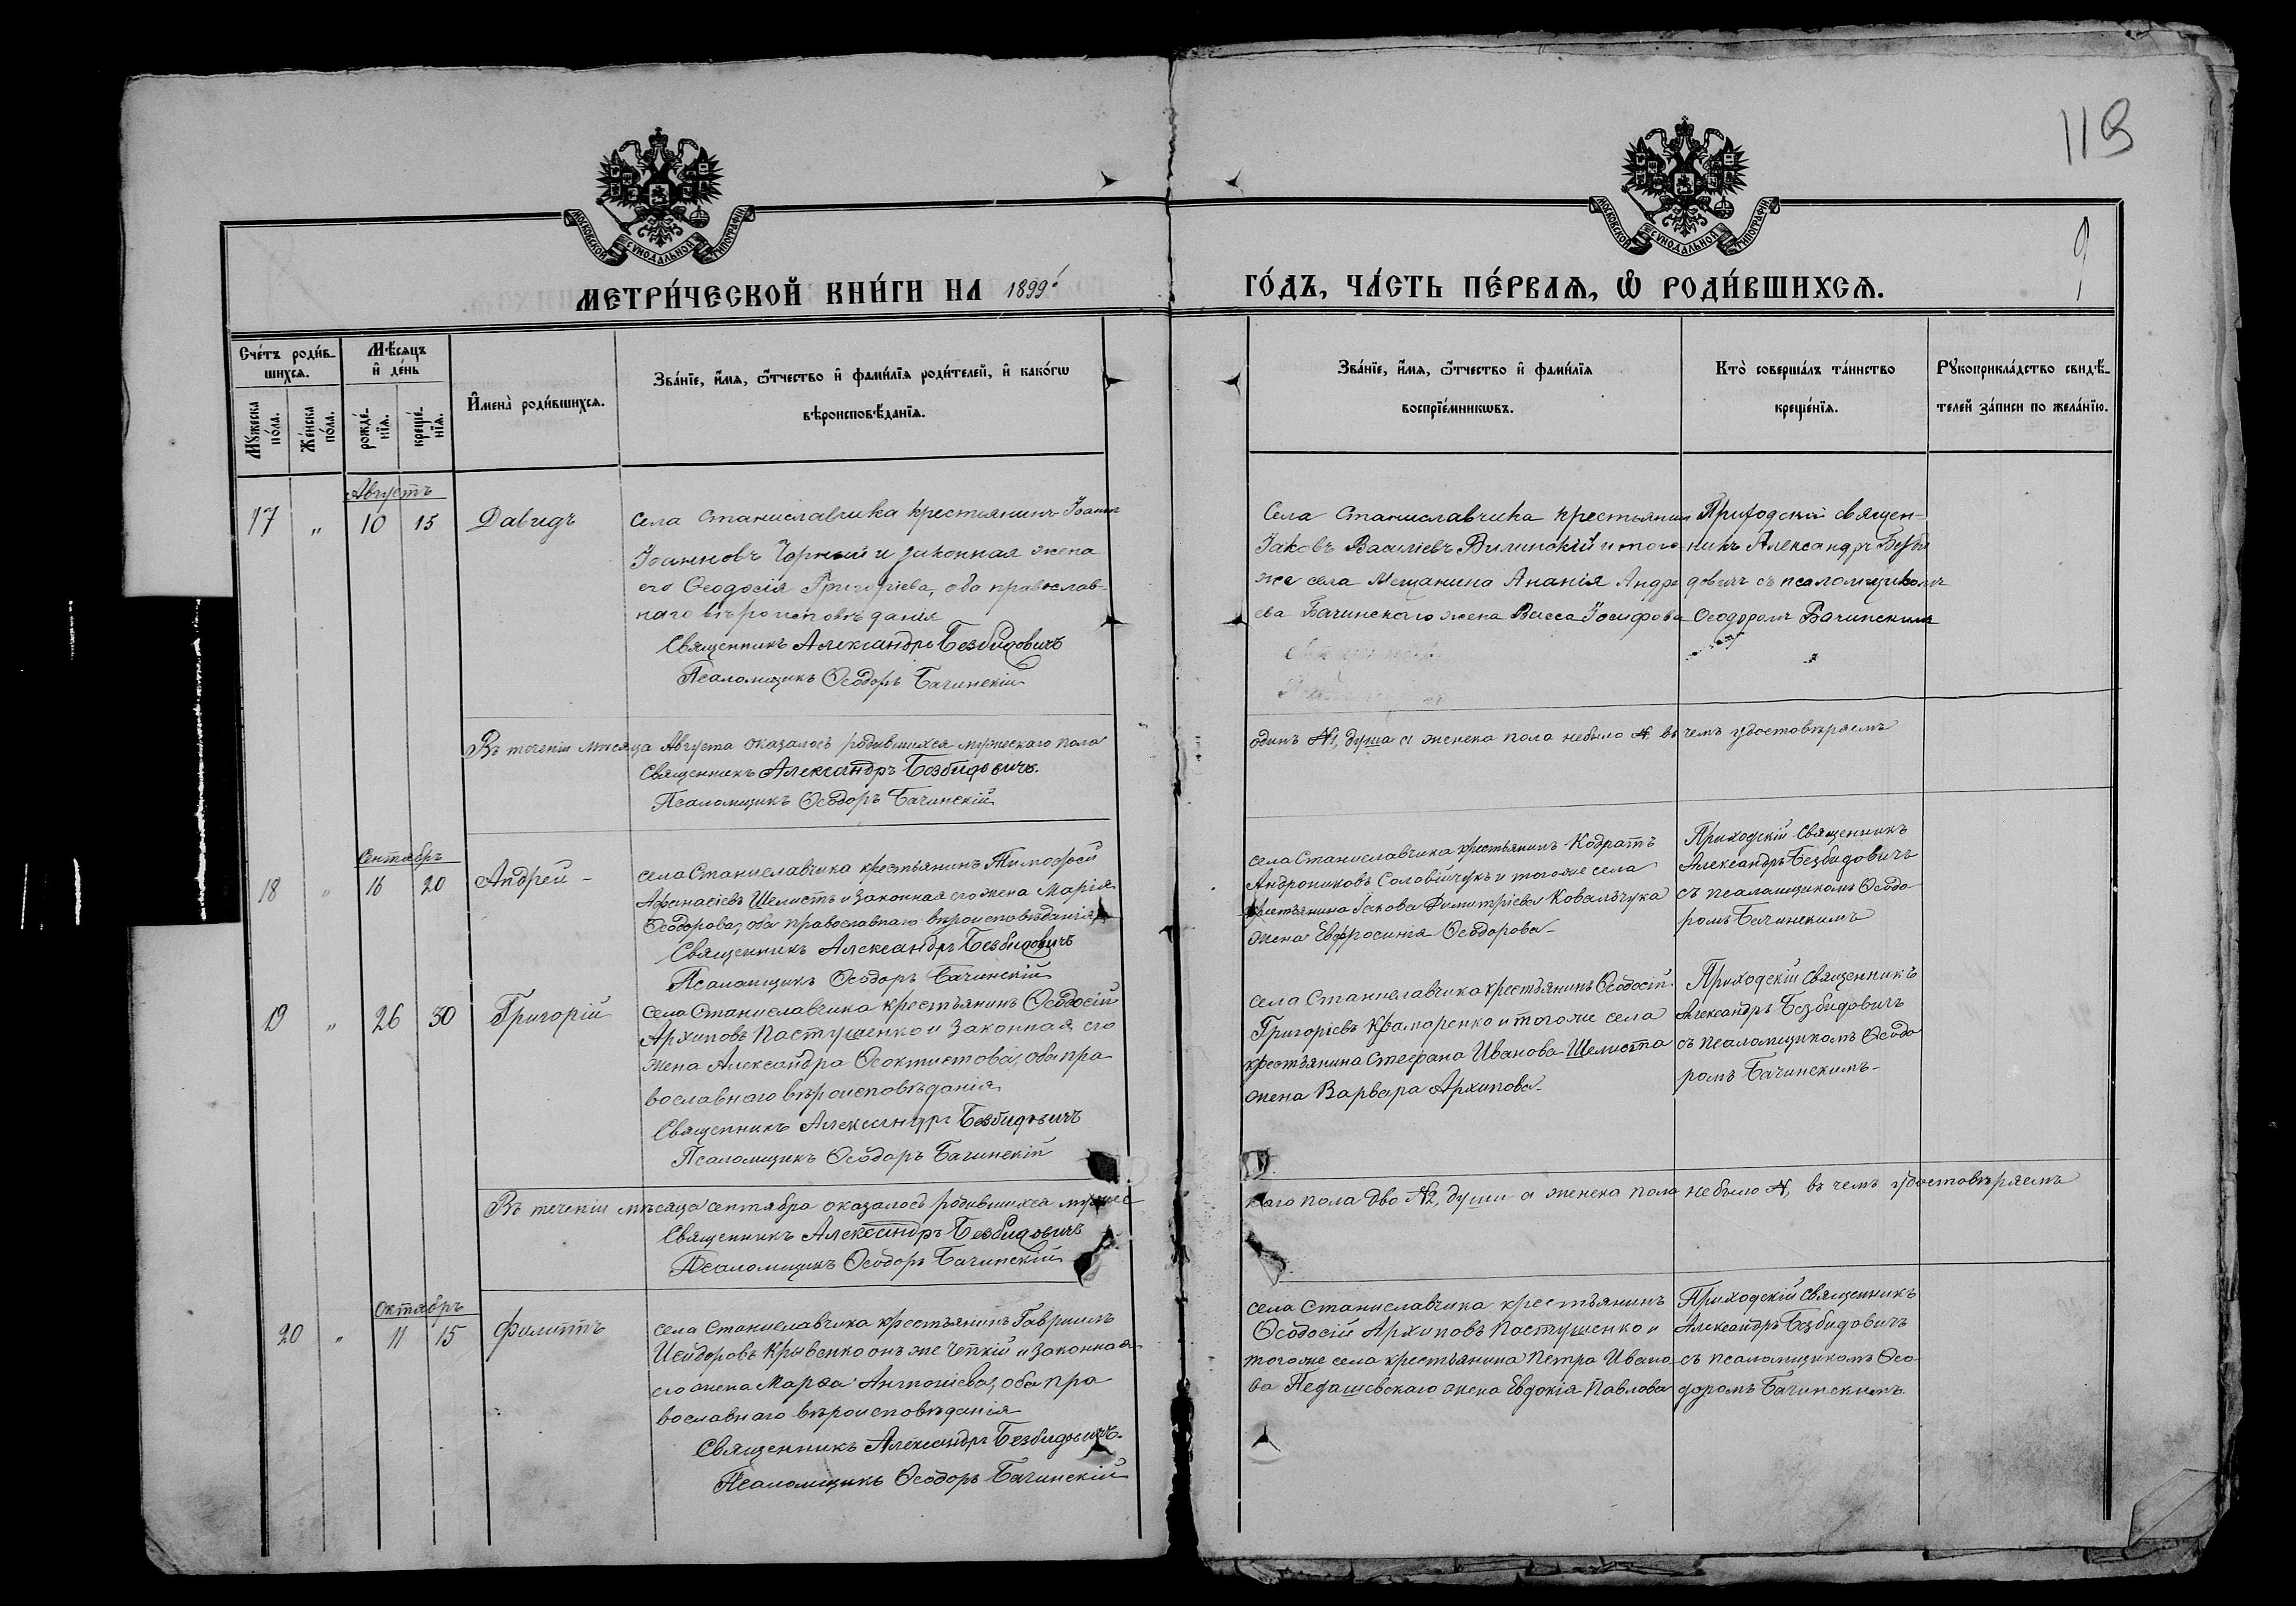 118
9
МОСКОВСКОЙ СѴНОДАЛЬНОЙ ТИПОГРАФІИ
МОСКОВСКОЙ СѴНОДАЛЬНОЙ ТИПОГРАФІИ
МЕТРИ́ЧЕСКОЙ КНИ́ГИ НА 1899
ГО́ДЪ, ЧА́СТЬ ПЕ́РВАѦ, Ѡ҆ РОДИ́ВШИХСѦ.
Сче́тъ роди́в-
шихсѧ.
Мѣ́сѧцъ
и҆ де́нь
Мꙋ́жеска
по́ла.
Же́нска
по́ла.
рожде́-
нїѧ.
креще́-
нїѧ.
И҆мена̀ роди́вшихсѧ.
Зва́нїе, и҆́мѧ, ѻ҆́тчество и҆ фами́лїѧ роди́телей, и҆ како́гѡ
вѣроисповѣ́данїѧ.
Зва́нїе, и҆́мѧ, ѻ҆́тчество и҆ фами́лїѧ
воспрїе́мникѡвъ.
Кто̀ соверша́лъ та́инство
креще́нїѧ.
Рꙋкоприкла́дство свидѣ́-
телей за́писи по жела́нїю.
Августъ
17 " 10 15 Давидъ
Села Станиславчика крестьянинъ Іоаннъ
Іоанновъ Чорный и законная жена
его Ѳеодосія Григоріева, оба православ-
наго вѣроисповѣданія
Священникъ Александръ Безбидовичъ
Псаломщикъ Ѳеодоръ Бачинскій
Села Станиславчика крестьянин
Іаковъ Василіевъ Вилинскій и того
же села Мещанина Ананія Андре
ева Бачинскаго жена Васса Іосифова
Приходскій священ-
никъ Александръ Безби
довичъ съ псаломщикомъ
Ѳеодоромъ Бачинскимъ
Въ теченіи мѣсяца Августа оказалось родившихся мужескаго пола
одинъ №1, душа а женска пола небыло №, въ чемъ удостовѣряемъ
Священникъ Александръ Безбидовичъ.
Псаломщикъ Ѳеодоръ Бачинскій
Сентябръ
18 " 16 20 Андрей -
села Станиславчика крестьянинъ Тимофей
Афанасіевъ Шелистъ и законная его жена Марія
Ѳеодорова, оба православнаго вѣроисповѣданія
Священникъ Александръ Безбидовичъ
Псаломщикъ Ѳеодоръ Бачинскій
села Станиславчика крестьянинъ Кодратъ
Андрониковъ Соловійчукъ и тогоже села
крестьянина Іакова Димитріева Ковальчука
жена Евфросинія Ѳеодорова-
Приходскій Священникъ
Александръ Безбидовичъ
съ псаломщикомъ Ѳеодо
ромъ Бачинскимъ
19 " 26 30 Григорій
села Станиславчика крестьянинъ Ѳеодосій
Архиповъ Пастушенко и законная его
жена Александра Ѳеоктистова, оба пра
вославнаго вѣроисповѣданія
Священникъ Александръ Безбидовичъ
Псаломщикъ Ѳеодоръ Бачинскій
села Станиславчика крестьянинъ Ѳеодосій
Григоріевъ Крамаренко и тогоже села
крестьянина Стефана Иванова Шелиста
жена Варвара Архипова-
Приходскій священникъ
Александръ Безбидовичъ
съ псаломщикомъ Ѳеодо
ромъ Бачинскимъ-
Въ теченіи мѣсяца сентября оказалось родившихся мужес
каго пола два №2, души а женска пола небыло №, въ чемъ удостовѣряемъ
Священникъ Александръ Безбидовичъ
Псаломщикъ Ѳеодоръ Бачинскій
Октябръ
20 " 11 15 Филиппъ
села Станиславчика крестьянинъ Гавріилъ
Исидоровъ Кривенко онъ же Чепкій и законная
его жена Марѳа Антоніева, оба пра
вославнаго вѣроисповѣданія
Священникъ Александръ Безбидовичъ.
Псаломщикъ Ѳеодоръ Бачинскій
села Станиславчика крестьянинъ
Ѳеодосій Архиповъ Пастушенко и
тогоже села крестьянина Петра Ивано
ва Педашевскаго жена Евдокія Павлова
Приходскій священникъ
Александръ Безбидовичъ
съ псаломщикомъ Ѳео
доромъ Бачинскимъ